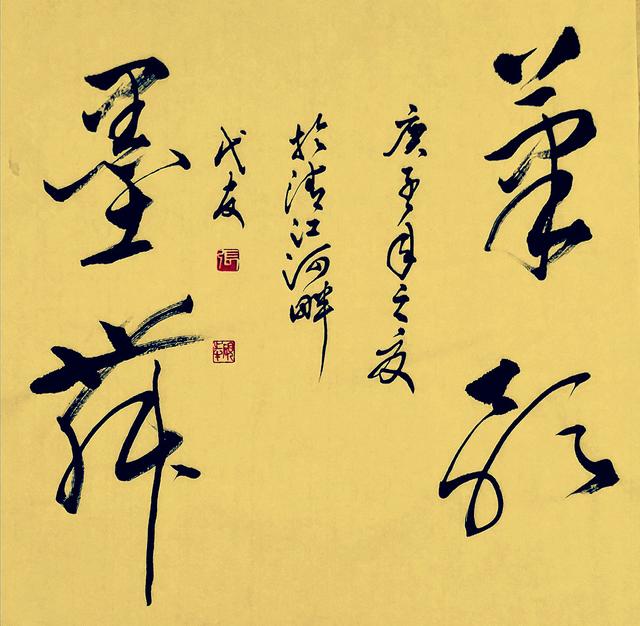 筆歌
墨舞
庚子年之夏
於清江河畔
代友
張